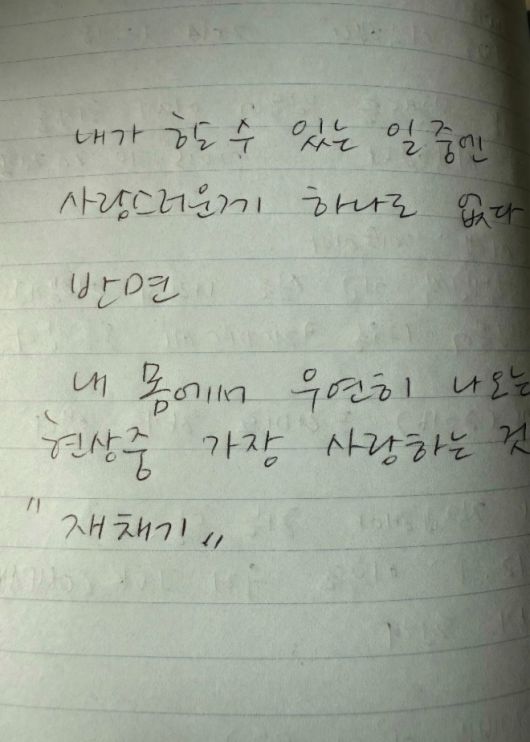 내가 할 수 있는 일중엔
사랑스러운게 하나도 없다
반면
내 몸에서 우연히 나오는
현상중 가장 사랑하는 것
"재채기"